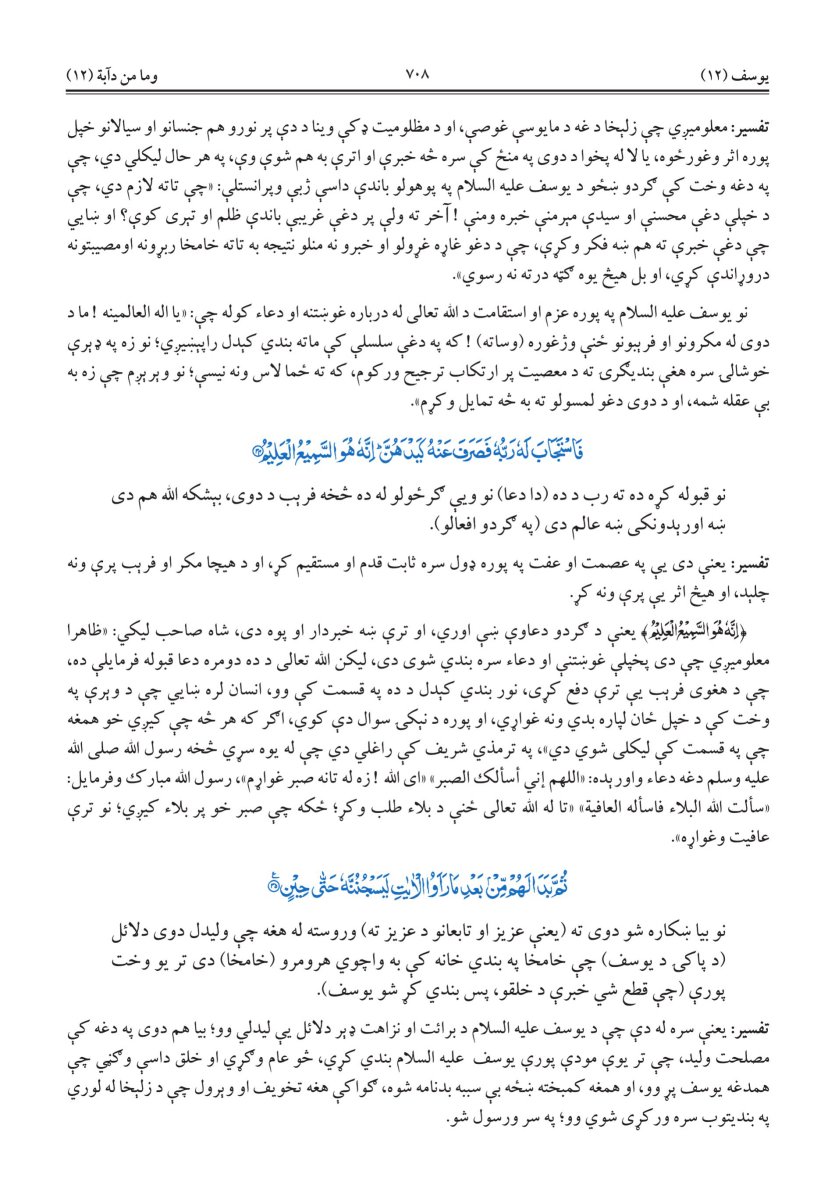 یوسف (۱۲)
۷۰۸
وما من دآبة (۱۲)
تفسیر: معلومیږي چې زلېخا د غه د مایوسې غوصې، او د مظلومیت ډکې وینا د دې پر نورو هم جنسانو او سیالانو خپل
پوره اثر وغورځوه، یا لا له پخوا د دوی په منځ کې سره څه خبرې او اترې به هم شوې وې، په هر حال لیکلي دي، چې
په دغه وخت کې ګردو ښځو د یوسف علیه السلام په پوهولو باندې داسې ژبې وپرانستلې: «چې تاته لازم دي، چې
د خپلې دغې محسنې او سیدې مېرمنې خبره ومنې !آخر ته ولې پر دغې غریبې باندې ظلم او تېری کوې؟ او ښایي
چې دغې خبرې ته هم ښه فکر وکړې، چې د دغو غاړه غړولو او خبرو نه منلو نتیجه به تاته خامخا ربړونه اومصیبتونه
دروړاندې کړي، او بل هیڅ یوه ګټه درته نه رسوي».
نو یوسف علیه السلام په پوره عزم او استقامت د الله تعالی له درباره غوښتنه او دعاء کوله چې: «یا اله العالمینه !ما د
دوی له مکرونو او فرېبونو ځنې وژغوره (وساته) !که په دغې سلسلې کې ماته بندي کېدل راپېښیږي؛ نو زه په ډېرې
خوشالۍ سره هغې بندیګرۍ ته د معصیت پر ارتکاب ترجیح ورکوم، که ته ځما لاس ونه نیسې؛ نو وېرېږم چې زه به
بې عقله شمه، او د دوی دغو لمسولو ته به څه تمایل وکړم».
فَاسْتَجَابَ لَهٗ رَبُّهٗ فَصَرَفَ عَنْهُ كَيْدَهُنَّ ؕ اِنَّهٗ هُوَ السَّمِيْعُ الْعَلِيْمُ ﴿۳۴﴾
نو قبوله کړه ده ته رب د ده (دا دعا) نو ویې ګرځولو له ده څخه فرېب د دوی، بېشکه الله هم دی
ښه اورېدونکی ښه عالم دی (په ګردو افعالو).
تفسیر: یعنې دی یې په عصمت او عفت په پوره ډول سره ثابت قدم او مستقیم کړ، او د هیچا مکر او فرېب پرې ونه
چلېد، او هیڅ اثر یې پرې ونه کړ.
﴿اِنَّهٗ هُوَ السَّمِيْعُ الْعَلِيْمُ﴾ یعنې د ګردو دعاوې ښې اوري، او ترې ښه خبردار او پوه دی، شاه صاحب لیکي: «ظاهرا
معلومیږي چې دی پخپلې غوښتنې او دعاء سره بندي شوی دی، لیکن الله تعالی د ده دومره دعا قبوله فرمایلې ده،
چې د هغوی فرېب یې ترې دفع کړی، نور بندي کېدل د ده په قسمت کې وو، انسان لره ښایي چې د وېرې په
وخت کې د خپل ځان لپاره بدي ونه غواړي، او پوره د نېکۍ سوال دې کوي، اګر که هر څه چې کیږي خو همغه
چې په قسمت کې لیکلی شوي دي»، په ترمذي شریف کې راغلي دي چې له یوه سړي څخه رسول الله صلی الله
علیه وسلم دغه دعاء واورېده: «اللهم إني أسألك الصبر» «ای الله !زه له تانه صبر غواړم»، رسول الله مبارک وفرمایل:
«سألت الله البلاء فاسأله العافية» «تا له الله تعالی ځنې د بلاء طلب وکړ؛ ځکه چې صبر خو پر بلاء کیږي؛ نو ترې
عافیت وغواړه».
ثُمَّ بَدَا لَهُمْ مِّنْۢ بَعْدِ مَا رَاَوُا الْاٰيٰتِ لَيَسْجُنُنَّهٗ حَتّٰى حِيْنٍ ﴿۳۵﴾
نو بیا ښکاره شو دوی ته (یعنې عزیز او تابعانو د عزیز ته) وروسته له هغه چې ولیدل دوی دلائل
(د پاکۍ د یوسف) چې خامخا په بندي خانه کې به واچوي هرومرو (خامخا) دی تر یو وخت
پورې (چې قطع شي خبرې د خلقو، پس بندي کړ شو یوسف).
تفسیر: یعنې سره له دې چې د یوسف علیه السلام د برائت او نزاهت ډېر دلائل یې لیدلي وو؛ بیا هم دوی په دغه کې
مصلحت ولید، چې تر یوې مودې پورې یوسف علیه السلام بندي کړي، څو عام وګړي او خلق داسې وګڼي چې
همدغه یوسف پړ وو، او همغه کمبخته ښځه بې سببه بدنامه شوه، ګواکې هغه تخویف او وېرول چې د زلېخا له لوري
په بندیتوب سره ورکړی شوي وو؛ په سر ورسول شو.